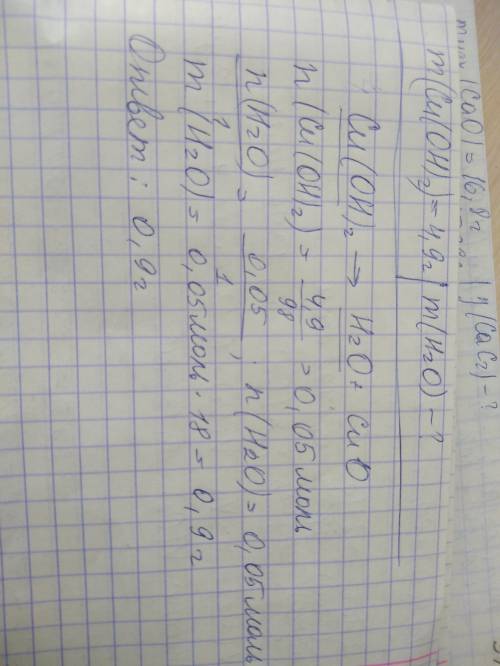 (CaO) = 16,8г | η(CaC₂) - ?
m(Cu(OH)₂) = 4,9г | m(H₂O) - ?
Cu(OH)₂ → H₂O + CuO
n(Cu(OH)₂) = 4,9/98 = 0,05 моль
n(H₂O)/1 = 0,05/1 ; n(H₂O) = 0,05 моль
m(H₂O) = 0,05 моль · 18 = 0,9 г
Ответ: 0,9 г